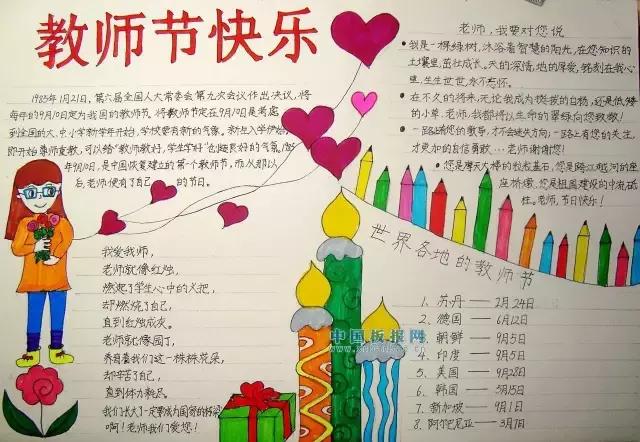 教师节快乐
1985年1月21日,第六届全国人大常委会第九次会议作出决议,将
每年的9月10日定为我国的教师节。将教师节定在9月10日是考虑
到全国的大、中小学新学年开始,学校要有新的气象。新生入学伊始,
即开始尊师重教,可以给"教师教好,学生学好"创造良好的气氛。
年9月10日,是中国恢复建立的第一个教师节,而从那以
后,老师便有了自己的节日。
我爱我师,
老师就像红烛,
燃起了学生心中的火把,
却燃烧了自己,
直到红烛成灰。
老师就像园丁,
养育着我们这一株株花朵,
却辛苦了自己,
直到体力耗尽。
我们长大了一定要成为国家的栋梁
啊!老师我们爱您!
老师,我要对您说
我是一棵绿树,沐浴着智慧的阳光,在您知识的
土壤里,茁壮成长。天的深情,地的厚爱,铭刻在我心
里,生生世世,永不忘怀。
在不久的将来,无论我成为挺拔的白杨,还是低矮
的小草,老师,我都将以生命的翠绿向您致敬!
一路上有您的教导,才不会迷失方向;一路上有您的关注,
才更加的自信勇敢……老师谢谢您!
您是摩天大楼的粒粒基石,您是跨江越河的
座座桥墩,您是祖国建设的中流砥
柱。老师,节日快乐!
世界各地的教师节
1、苏丹——2月24日
2、德国——6月12日
3、朝鲜——9月5日
4、印度——9月5日
5、美国——9月28日
6、韩国——5月15日
7、新加坡——9月1日
8、阿尔巴尼亚——3月7日
中国板报网